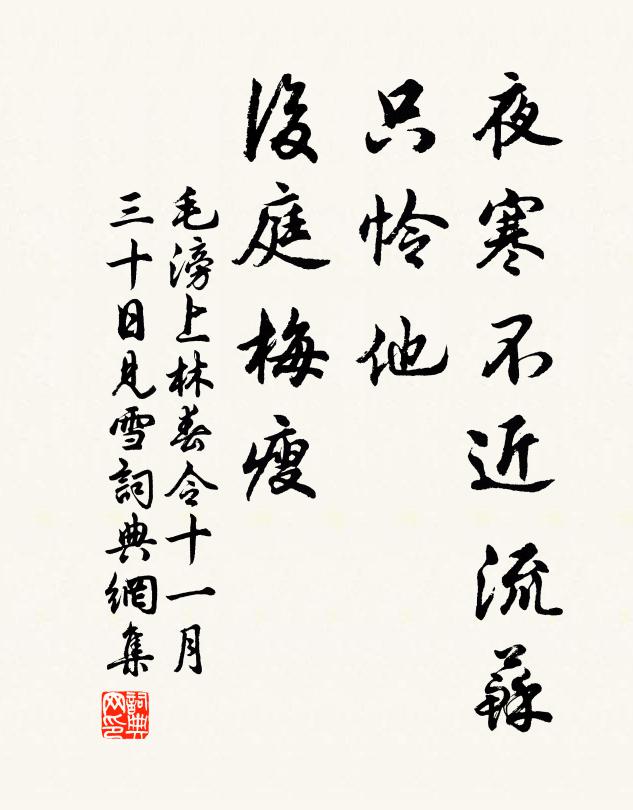 夜寒不近流蘇
只怜他
後庭梅瘦
毛滂上林春令十一月
三十日見雪詞典網集
詞典
网印